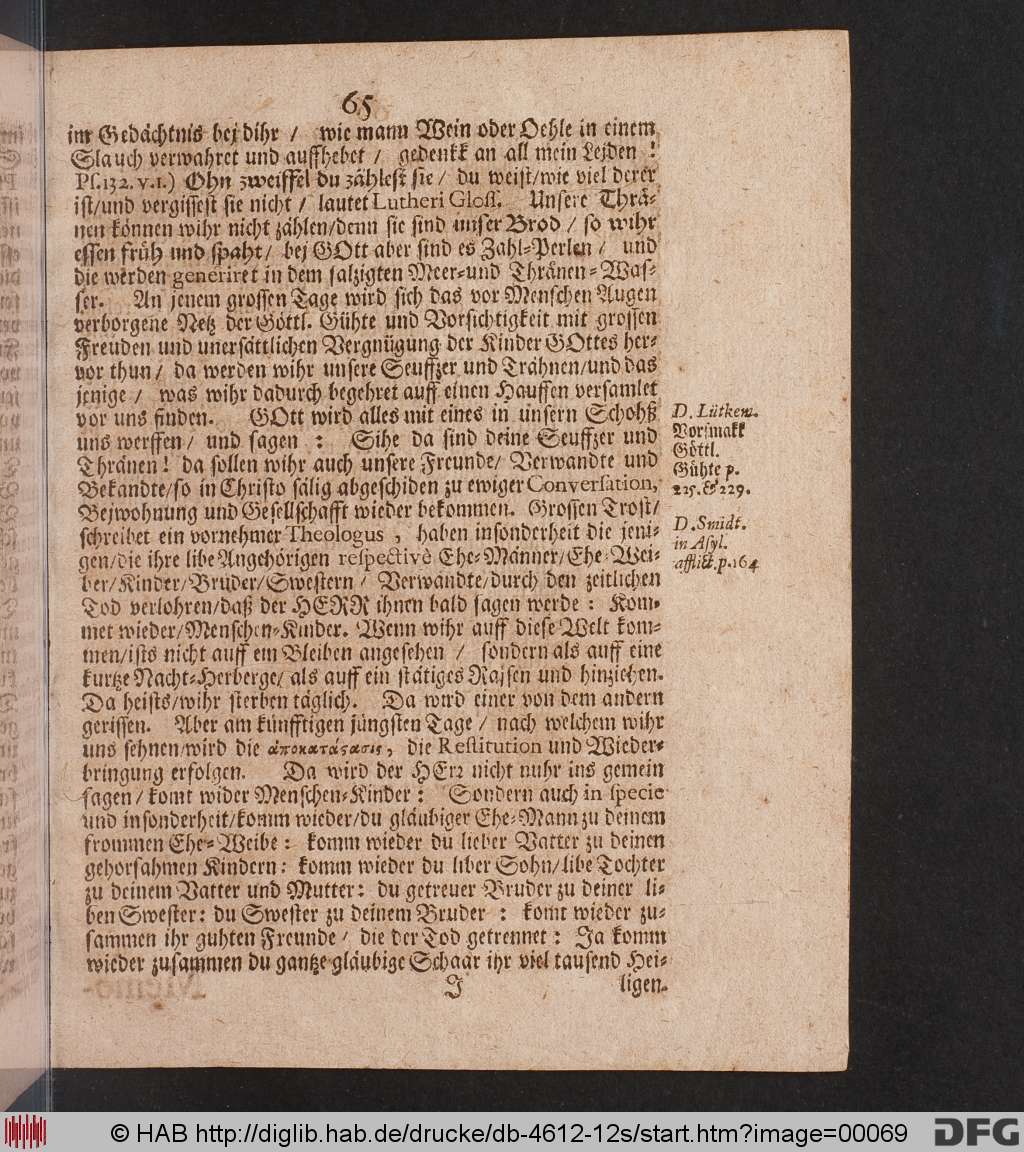 65
im Gedächtnis bej dihr / wie mann Wein oder Oehle in einem
Slauch verwahret und auffhebet / gedenkk an all mein Lejden !
Ps.132. v.1.) Ohn zweiffel du zählest sie / du weist/wie viel derer
ist/und vergissest sie nicht / lautet Lutheri Gloss. Unsere Thrä-
nen können wihr nicht zählen/denn sie sind unser Brod / so wihr
essen früh und spaht / bej GOtt aber sind es Zahl-Perlen / und
die werden generiret in dem salzigten Meer-und Thränen-Was-
ser. An jenem grossen Tage wird sich das vor Menschen Augen
verborgene Netz der Göttl. Gühte und Vorsichtigkeit mit grossen
Freuden und unersättlichen Vergnügung der Kinder GOttes her-
vor thun / da werden wihr unsere Seuffzer und Trähnen/und das
jenige / was wihr dadurch begehret auff einen Hauffen versamlet
vor uns finden. GOtt wird alles mit eines in unsern Schohß
uns werffen / und sagen : Sihe da sind deine Seuffzer und
Thränen ! da sollen wihr auch unsere Freunde / Verwandte und
Bekandte/so in Christo sälig abgeschiden zu ewiger Conversation,
Bejwohnung und Gesellschafft wieder bekommen. Grossen Trost/
schreibet ein vornehmer Theologus , haben insonderheit die jeni-
gen/die ihre libe Angehörigen respectivè Ehe-Männer/Ehe-Wei-
ber/Kinder/Brüder/Swestern / Verwandte/durch den zeitlichen
Tod verlohren/daß der HERR ihnen bald sagen werde : Kom-
met wieder/Menschen-Kinder. Wenn wihr auff diese Welt kom-
men/ists nicht auff ein Bleiben angesehen / sondern als auff eine
kurtze Nacht-Herberge/ als auff ein stätiges Rajsen und hinziehen.
Da heists/wihr sterben täglich. Da wird einer von dem andern
gerissen. Aber am künfftigen jüngsten Tage / nach welchem wihr
uns sehnen/wird die ἀποκατάϛασις, die Restitution und Wieder-
bringung erfolgen. Da wird der HErr nicht nuhr ins gemein
sagen / komt wider Menschen-Kinder : Sondern auch in specie
und insonderheit/komm wieder/du gläubiger Ehe-Mann zu deinem
frommen Ehe-Weibe : komm wieder du lieber Vatter zu deinen
gehorsahmen Kindern : komm wieder du liber Sohn/libe Tochter
zu deinem Vatter und Mutter : du getreuer Bruder zu deiner li-
ben Swester : du Swester zu deinem Bruder : komt wieder zu-
sammen ihr guhten Freunde / die der Tod getrennet : Ja komm
wieder zusammen du gantze gläubige Schaar ihr viel tausend Hei-
J ligen.
D. Lütkem.
Vorsmakk
Göttl.
Gühte p.
225. & 229.
D. Smidt.
in Asyl.
afflict. p. 164
© HAB http://diglib.hab.de/drucke/db-4612-12s/start.htm?image=00069
DFG